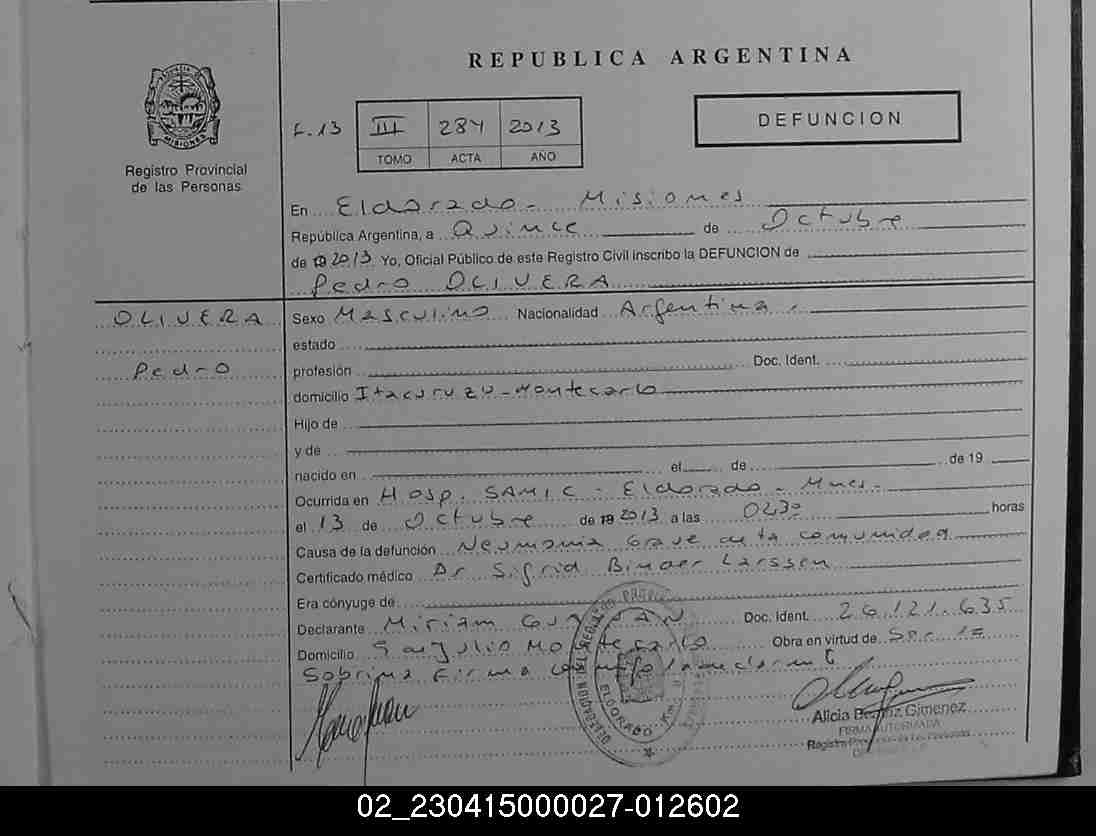 REPUBLICA ARGENTINA
PROVINCIA DE
MISIONES
Registro Provincial
de las Personas
F.13 III 284 2013
TOMO ACTA AÑO
DEFUNCION
En Eldorado - Misiones
República Argentina, a Quince de Octubre
de 19 2013 Yo, Oficial Público de este Registro Civil inscribo la DEFUNCION de
Pedro OLIVERA
OLIVERA
Pedro
Sexo Masculino Nacionalidad Argentina.
estado
profesión Doc. Ident.
domicilio Itacuruzu - Montecarlo
Hijo de
y de
nacido en el de de 19
Ocurrida en Hosp. SAMIC - Eldorado - Mnes.
el 13 de Octubre de 19 2013 a las 0230 horas
Causa de la defunción Neumonia Grave de la comunidad
Certificado médico Dr Sigrid Binder Larssen
Era cónyuge de
Declarante Miriam Doc. Ident. 26.121.635
Domicilio 9 de Julio Montecarlo Obra en virtud de Ser la
Sobrina Firma
DELEGACION DEL REGISTRO
ELDORADO Km
Alicia Beatriz Gimenez
FIRMA AUTORIZADA
Registro Provincial de las Personas
02_230415000027-012602